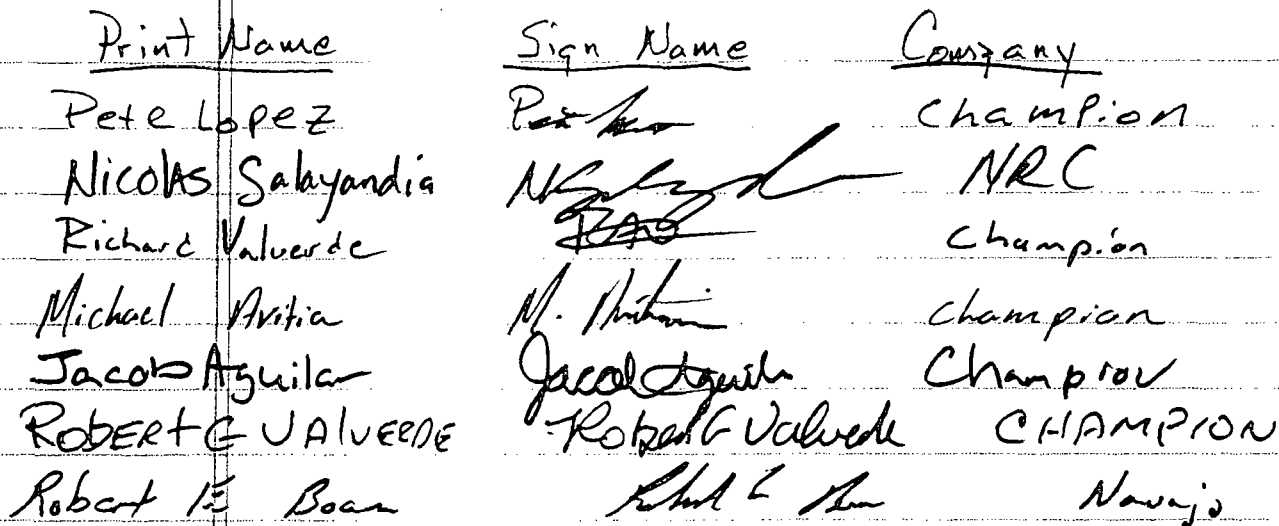 Print Name Sign Name Company
Pete Lopez Champion
Nicolas Salayandia NRC
Richard Valverde Champion
Michael Avitia M. Champion
Jacob Aguilar Jacob Aguilar Champion
Robert G VAlVERDE Robert G Valverde CHAMPION
Robert E Navajo